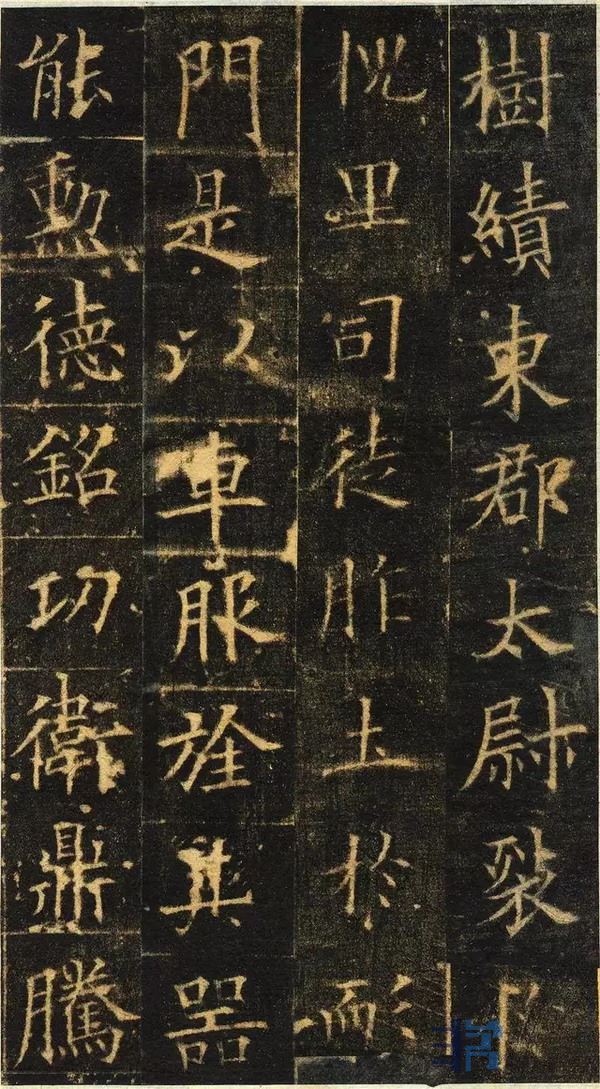 樹績東郡太尉裂
槐里司徒胙土於耏
門是以車服旌其器
能勳德銘功衛鼎騰